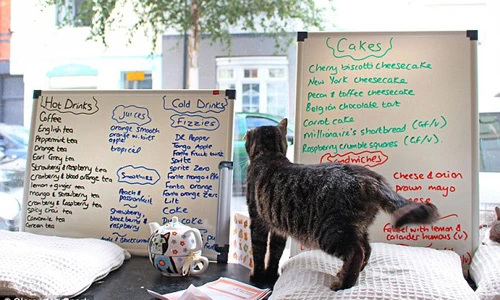 Hot Drinks
Coffee
English tea
Peppermint tea
Orange tea
Earl Grey tea
Strawberry & Raspberry tea
Cranberry & blood orange tea
Lemon + ginger tea
mango & Strawberry tea
Cranberry & Raspberry tea
Spicy Chai tea
Camomile tea
Green tea
Juices
orange smooth
orange w. bits
apple
tropical
Smoothies
Peach & passionfruit
Strawberry
blackberry &
raspberry
Cold Drinks
Fizzies
DR Pepper
Tango Apple
Fanta Fruit twist
Sprite
Sprite Zero
Fanta orange
Fanta orange
Zero
Lilt
Coke
Diet coke
Cakes
Cherry biscotti cheesecake
New York cheesecake
Pecan & toffee cheesecake
Belgian chocolate tart
Carrot cake
Millionaire's shortbread (GF/V)
Raspberry crumble squares (GF/V).
Sandwiches
Cheese & onion
prawn mayo
cheese
Falafel with lemon &
coriander humous (v)